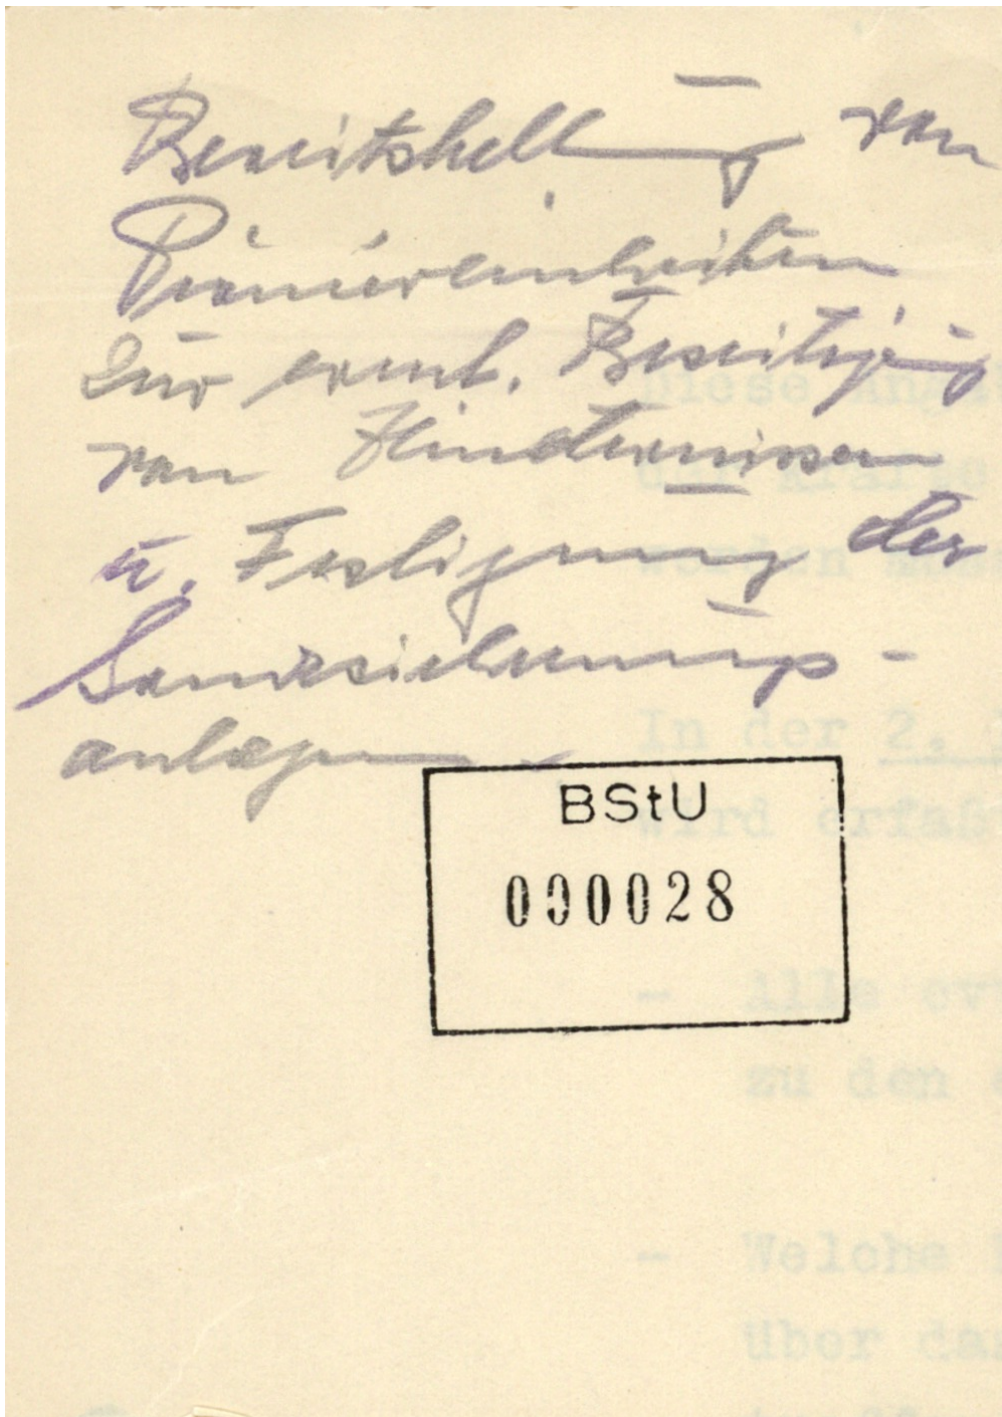 Bereitstellung von
Pioniereinheiten
zur event. Beseitigung
von Hindernissen
u. Festigung der
Grenzsicherungs-
anlagen
BStU
000028
Diese Anga
der Kräfte
werden
In der 2.
wird erfaß
- Alle ev
zu den
- Welche
über da